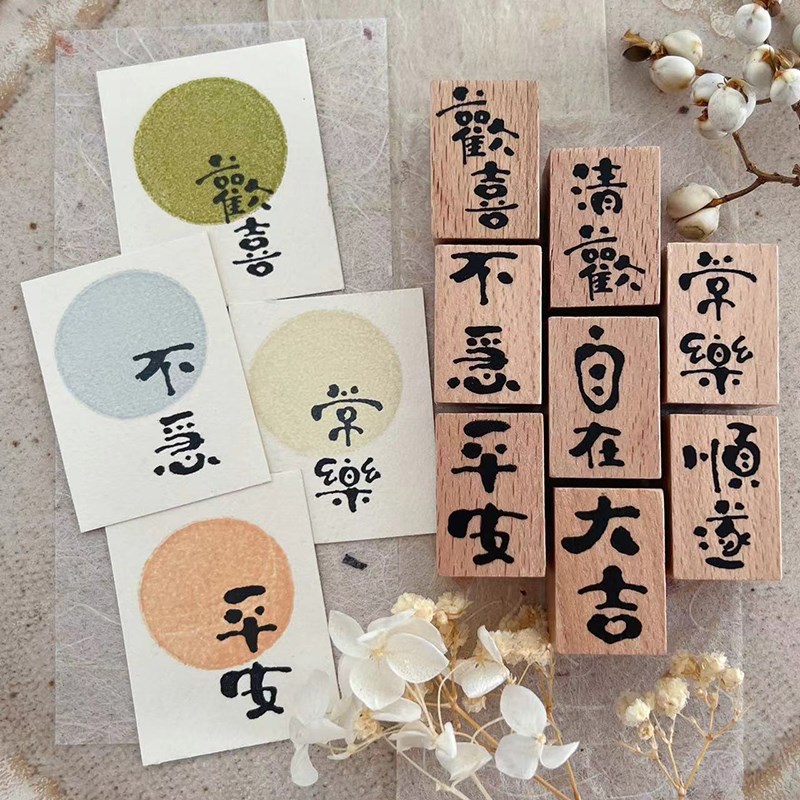 歡喜
不急
常樂
平安
歡喜
清歡
不急
常樂
自在
平安
順遂
大吉